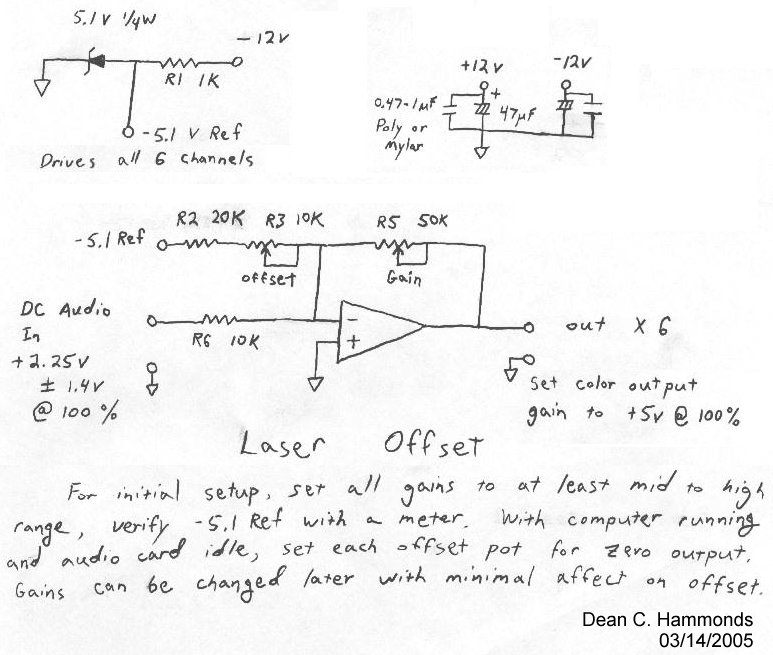 5.1V 1/4W
-12V
R1 1K
-5.1 V Ref
Drives all 6 channels
+12V
-12V
+
0.47-1µF
47µF
Poly or
Mylar
R2 20K R3 10K R5 50K
-5.1 Ref
offset
Gain
DC Audio
In
+2.25V
± 1.4V
@ 100%
R6 10K
-
+
out X 6
Set color output
gain to +5V @ 100%
Laser Offset
For initial setup, set all gains to at least mid to high
range, verify -5.1 Ref with a meter. With computer running
and audio card idle, set each offset pot for zero output.
Gains can be changed later with minimal affect on offset.
Dean C. Hammonds
03/14/2005